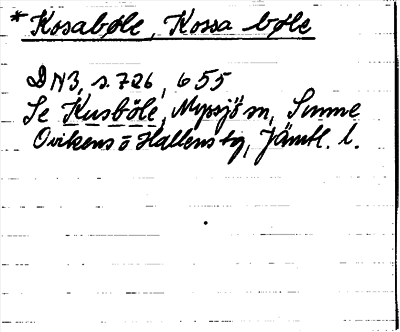 * Kosabøle, Kossa bøle
DN3, s. 726, 655
Se Kusböle, Myssjö sn,
Ovikens o Hallens tg, Jämtl. l.